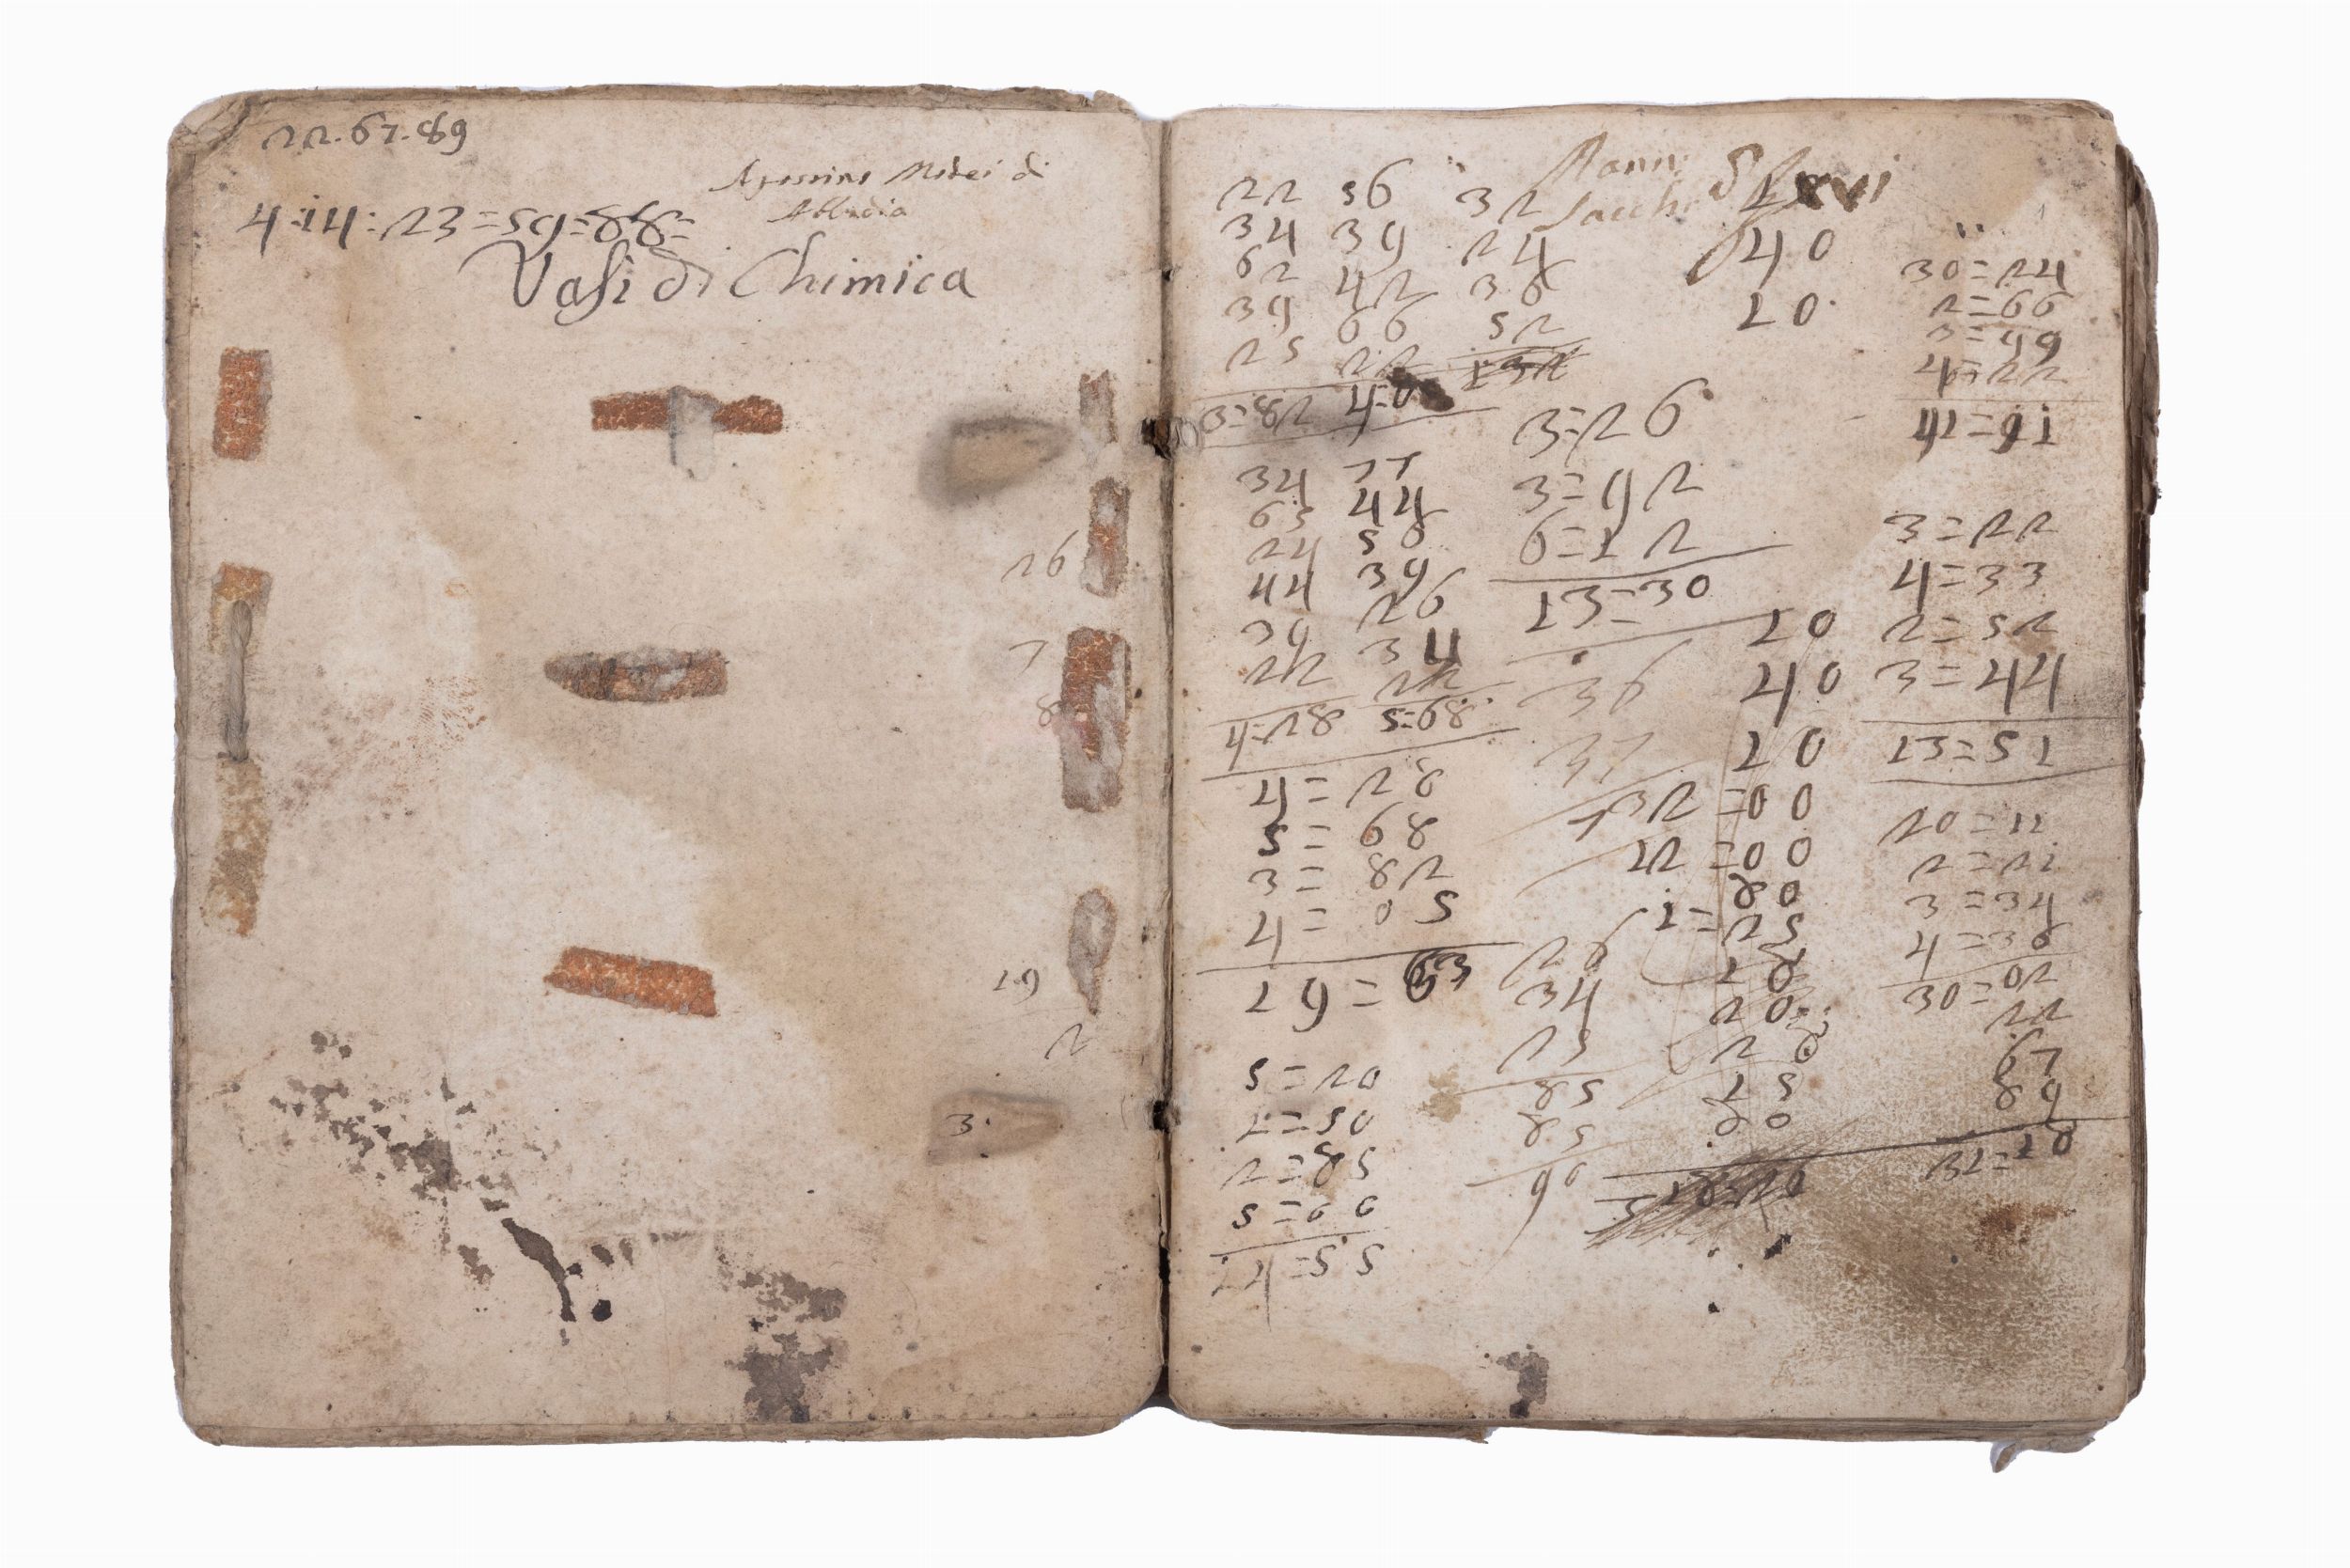 22.67.89
4:14:23=59=88=
Agostino Mattei di
Abbadia
Vasi di Chimica
26
7
8
19
2
3.
22 56 32
34 39 24
62 42 36
39 66 52
25 22
3=82 4=0
34 77
63 44
24 58
44 39
39 26
22 34
22
4=28 5=68
4=28
5=68
3=82
4=05
19=63
5=20
1=50
2=85
5=00
14=55
3=26
3=92
6=12
13=30
36
37
26
34
25
85
85
90
xvi
40
10
10
40
10
132=00
12=00
80
1=25
18
20
15
80
30=24
2=66
3=99
4=22
41=91
3=22
4=33
2=52
3=44
13=51
20=11
2=22
3=34
4=36
30=02
22
67
89